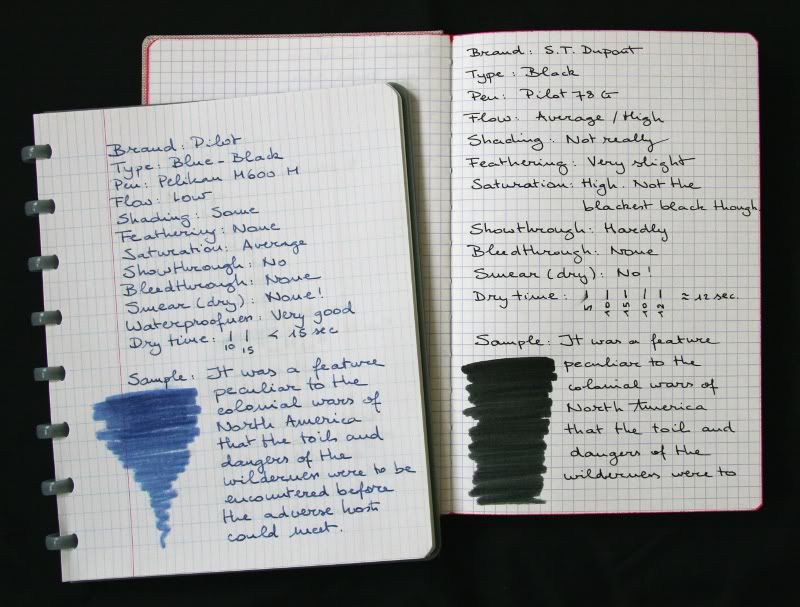 Brand: Pilot
Type: Blue-Black
Pen: Pelikan M600 M
Flow: Low
Shading: Some
Feathering: None
Saturation: Average
Showthrough: No
Bleedthrough: None
Smear (dry): None!
Waterproofness: Very good
Dry time: 10 15 < 15 sec
Sample: It was a feature
peculiar to the
colonial wars of
North America
that the toils and
dangers of the
wilderness were to be
encountered before
the adverse hosts
could meet.
Brand: S.T. Dupont
Type: Black
Pen: Pilot 78 G
Flow: Average / High
Shading: Not really
Feathering: Very slight
Saturation: High. Not the
blackest black though.
Showthrough: Hardly
Bleedthrough: None
Smear (dry): No!
Dry time: 5 10 15 20 ≈ 12 sec.
Sample: It was a feature
peculiar to the
colonial wars of
North America
that the toils and
dangers of the
wilderness were to